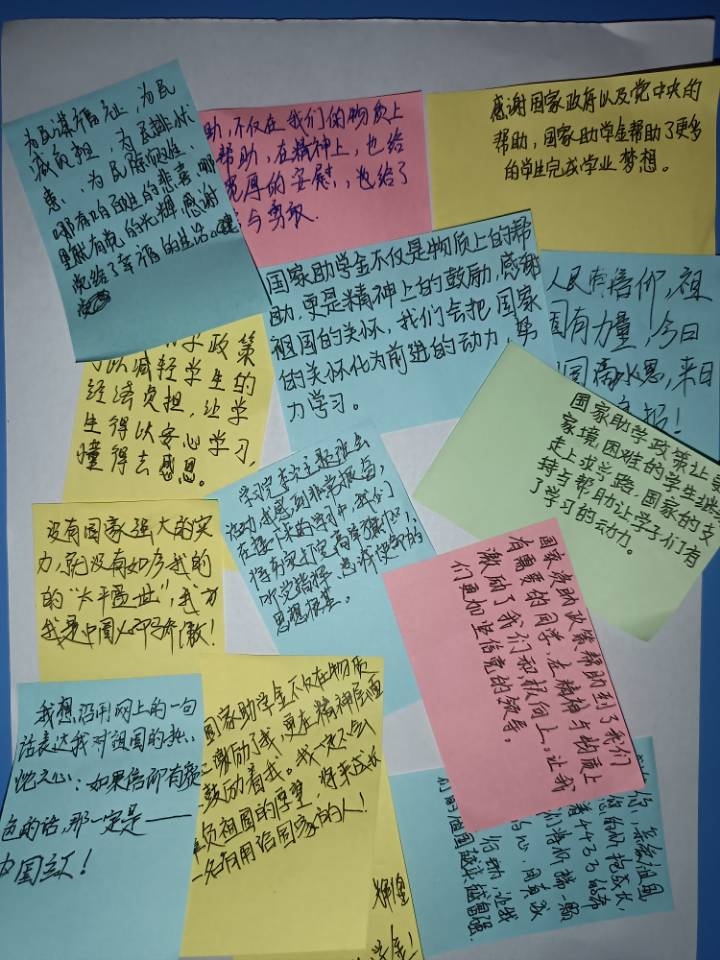 为民谋福祉，为民
减负担，为民排忧
，为民除
哪有百姓的悲喜，哪
里就有党的光辉，感谢
党给了幸福的生活。
助，不仅在我们的物质上
帮助，在精神上，也给
厚的安慰，也给了
与勇敢.
感谢国家政府以及党中央的
帮助，国家助学金帮助了更多
的学生完成学业梦想。
国家助学金不仅是物质上的帮
助，更是精神上的鼓励，感谢
祖国的关怀，我们会把国家
的关怀化为前进的动力，努
力学习。
人民有信仰，祖
国有力量，今日
国滴水恩，来日
报！
学政策
以减轻学生的
经济负担，让学
生得以安心学习，
懂得去感恩。
国家助学政策让
家境困难的学生继
走上求学路，国家的支
持与帮助让学子们有
了学习的动力。
学习完本次主题班会
活动，我感到非常振奋，
在接下来的学习中，我们
听党指挥
思想
没有国家强大的实
力，就没有如今我的
的“太平盛世”，我为
我是中国人而骄傲！
国家资助政策帮助到了我们
有需要的同学，在精神与物质上
激励了我们积极向上。让我
们更加坚信党的领导。
我想沿用网上的一句
话表达我对祖国的热
忱之心：如果信仰有颜
色的话，那一定是——
中国红！
国家助学金不仅在物质
激励了我，更在精神层面
鼓励着我。我一定不会
辜负祖国的厚望，将来成长
一名有用给国家的人！
辉煌
学金！
行动，让我
们的祖国越来越富强.